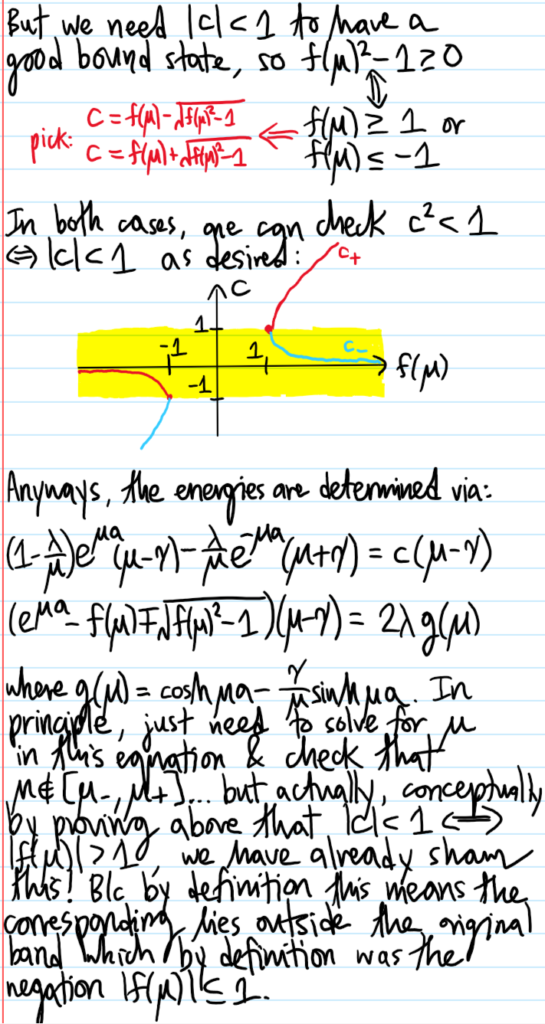 But we need |c| < 1 to have a
good bound state, so f(μ)² - 1 ≥ 0
⇕
pick: c = f(μ) - √(f(μ)² - 1) ⇐ f(μ) ≥ 1 or
c = f(μ) + √(f(μ)² - 1) f(μ) ≤ -1
In both cases, one can check c² < 1
⇔ |c| < 1 as desired:
c₊
C
1
-1 1 c₋
f(μ)
-1
Anyways, the energies are determined via:
(1 - λ/μ)e^{μa}(μ-γ) - λ/μ e^{-μa}(μ+γ) = c(μ-γ)
(e^{μa} - f(μ) ∓ √(f(μ)² - 1))(μ-γ) = 2λg(μ)
where g(μ) = cosh μa - γ/μ sinh μa. In
principle, just need to solve for μ
in this equation & check that
μ ∉ [μ₋, μ₊]... but actually, conceptually
by proving above that |c| < 1 ⟺
|f(μ)| > 1, we have already shown
this! B/c by definition this means the
corresponding lies outside the original
band which by definition was the
negation |f(μ)| ≤ 1.